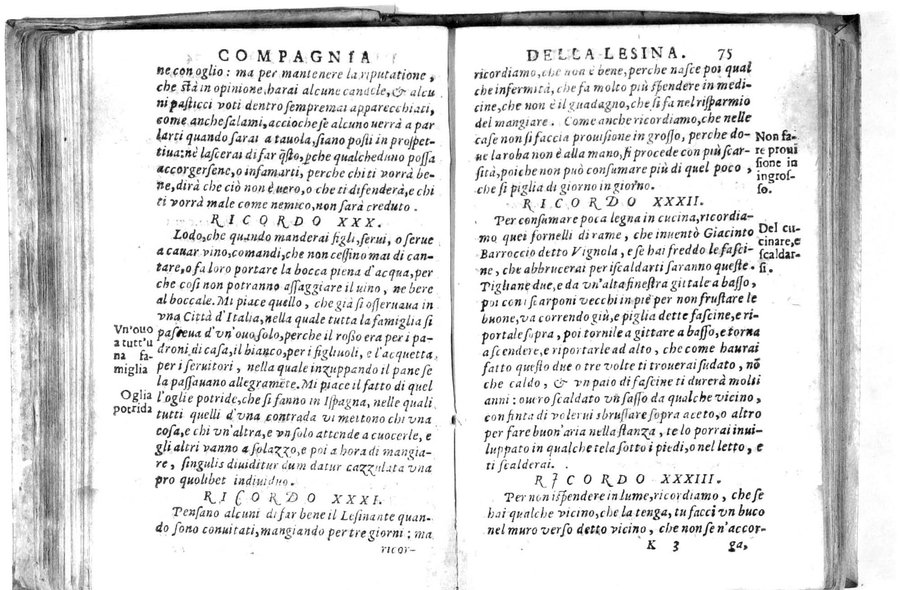 COMPAGNIA
ne con oglio : ma per mantenere la riputatione,
che stà in opinione, harai alcune candele, & alcu
ni pasticci voti dentro sempremai apparecchiati,
come anche salami, accioche se alcuno uerrà a par
larti quando sarai a tauola, siano posti in prospet-
tiua: nè lascerai di far q̃sto, ꝑche qualcheduno possa
accorgersene, o infamarti, perche chi ti vorrà be-
ne, dirà che ciò non è uero, o che ti difenderà, e chi
ti vorrà male come nemico, non sarà creduto.
RICORDO XXX.
Lodo, che quando manderai figli, serui, o serue
a cauar vino, comandi, che non cessino mai di can-
tare, o fa loro portare la bocca piena d'acqua, per
che così non potranno assaggiare il uino, ne bere
al boccale. Mi piace quello, che già si osseruaua in
vna Città d'Italia, nella quale tutta la famiglia si
pasceua d'vn'ouo solo, perche il rosso era per i pa-
droni di casa, il bianco, per i figliuoli, e l'acquetta,
per i seruitori, nella quale inzuppando il pane se
la passauano allegramẽte. Mi piace il fatto di quel
l'oglie potride, che si fanno in Ispagna, nelle quali
tutti quelli d'vna contrada vi mettono chi vna
cosa, e chi vn'altra, e vn solo attende a cuocerle, e
gli altri vanno a solazzo, e poi a hora di mangia-
re, singulis diuiditur dum datur cazzulata vna
pro quolibet indiuiduo.
RICORDO XXXI.
Pensano alcuni di far bene il Lesinante quan-
do sono conuitati, mangiando per tre giorni : ma
ricor-
Vn'ouo
a tutt'u
na fa-
miglia
Oglia
potrida
DELLA LESINA. 75
ricordiamo, che non è bene, perche nasce poi qual
che infermità, che fa molto più spendere in medi-
cine, che non è il guadagno, che si fa nel risparmio
del mangiare. Come anche ricordiamo, che nelle
case non si faccia prouisione in grosso, perche do-
ue la roba non è alla mano, si procede con più scar-
sità, poiche non può consumare più di quel poco,
che si piglia di giorno in giorno.
RICORDO XXXII.
Per consumare poca legna in cucina, ricordia-
mo quei fornelli di rame, che inuentò Giacinto
Barroccio detto Vignola, e se hai freddo le fasci-
ne, che abbrucerai per iscaldarti saranno queste.
Pigliane due, e da vn'alta finestra gittale a basso,
poi con iscarponi vecchi in piè per non frustare le
buone, va correndo giù, e piglia dette fascine, e ri-
portale sopra, poi tornile a gittare a basso, e torna
a scendere, e riportarle ad alto, che come haurai
fatto questo due o tre volte ti trouerai sudato, nõ
che caldo, & vn paio di fascine ti durerà molti
anni : ouero scaldato vn sasso da qualche vicino,
con finta di volerui sbruffare sopra aceto, o altro
per fare buon'aria nella stanza, te lo porrai inui-
luppato in qualche tela sotto i piedi, o nel letto, e
ti scalderai.
RICORDO XXXIII.
Per non ispendere in lume, ricordiamo, che se
hai qualche vicino, che la tenga, tu facci vn buco
nel muro verso detto vicino, che non se n'accor-
K 3 ga,
Non fa-
re proui
sione in
ingros-
so.
Del cu-
cinare, e
scaldar-
si.